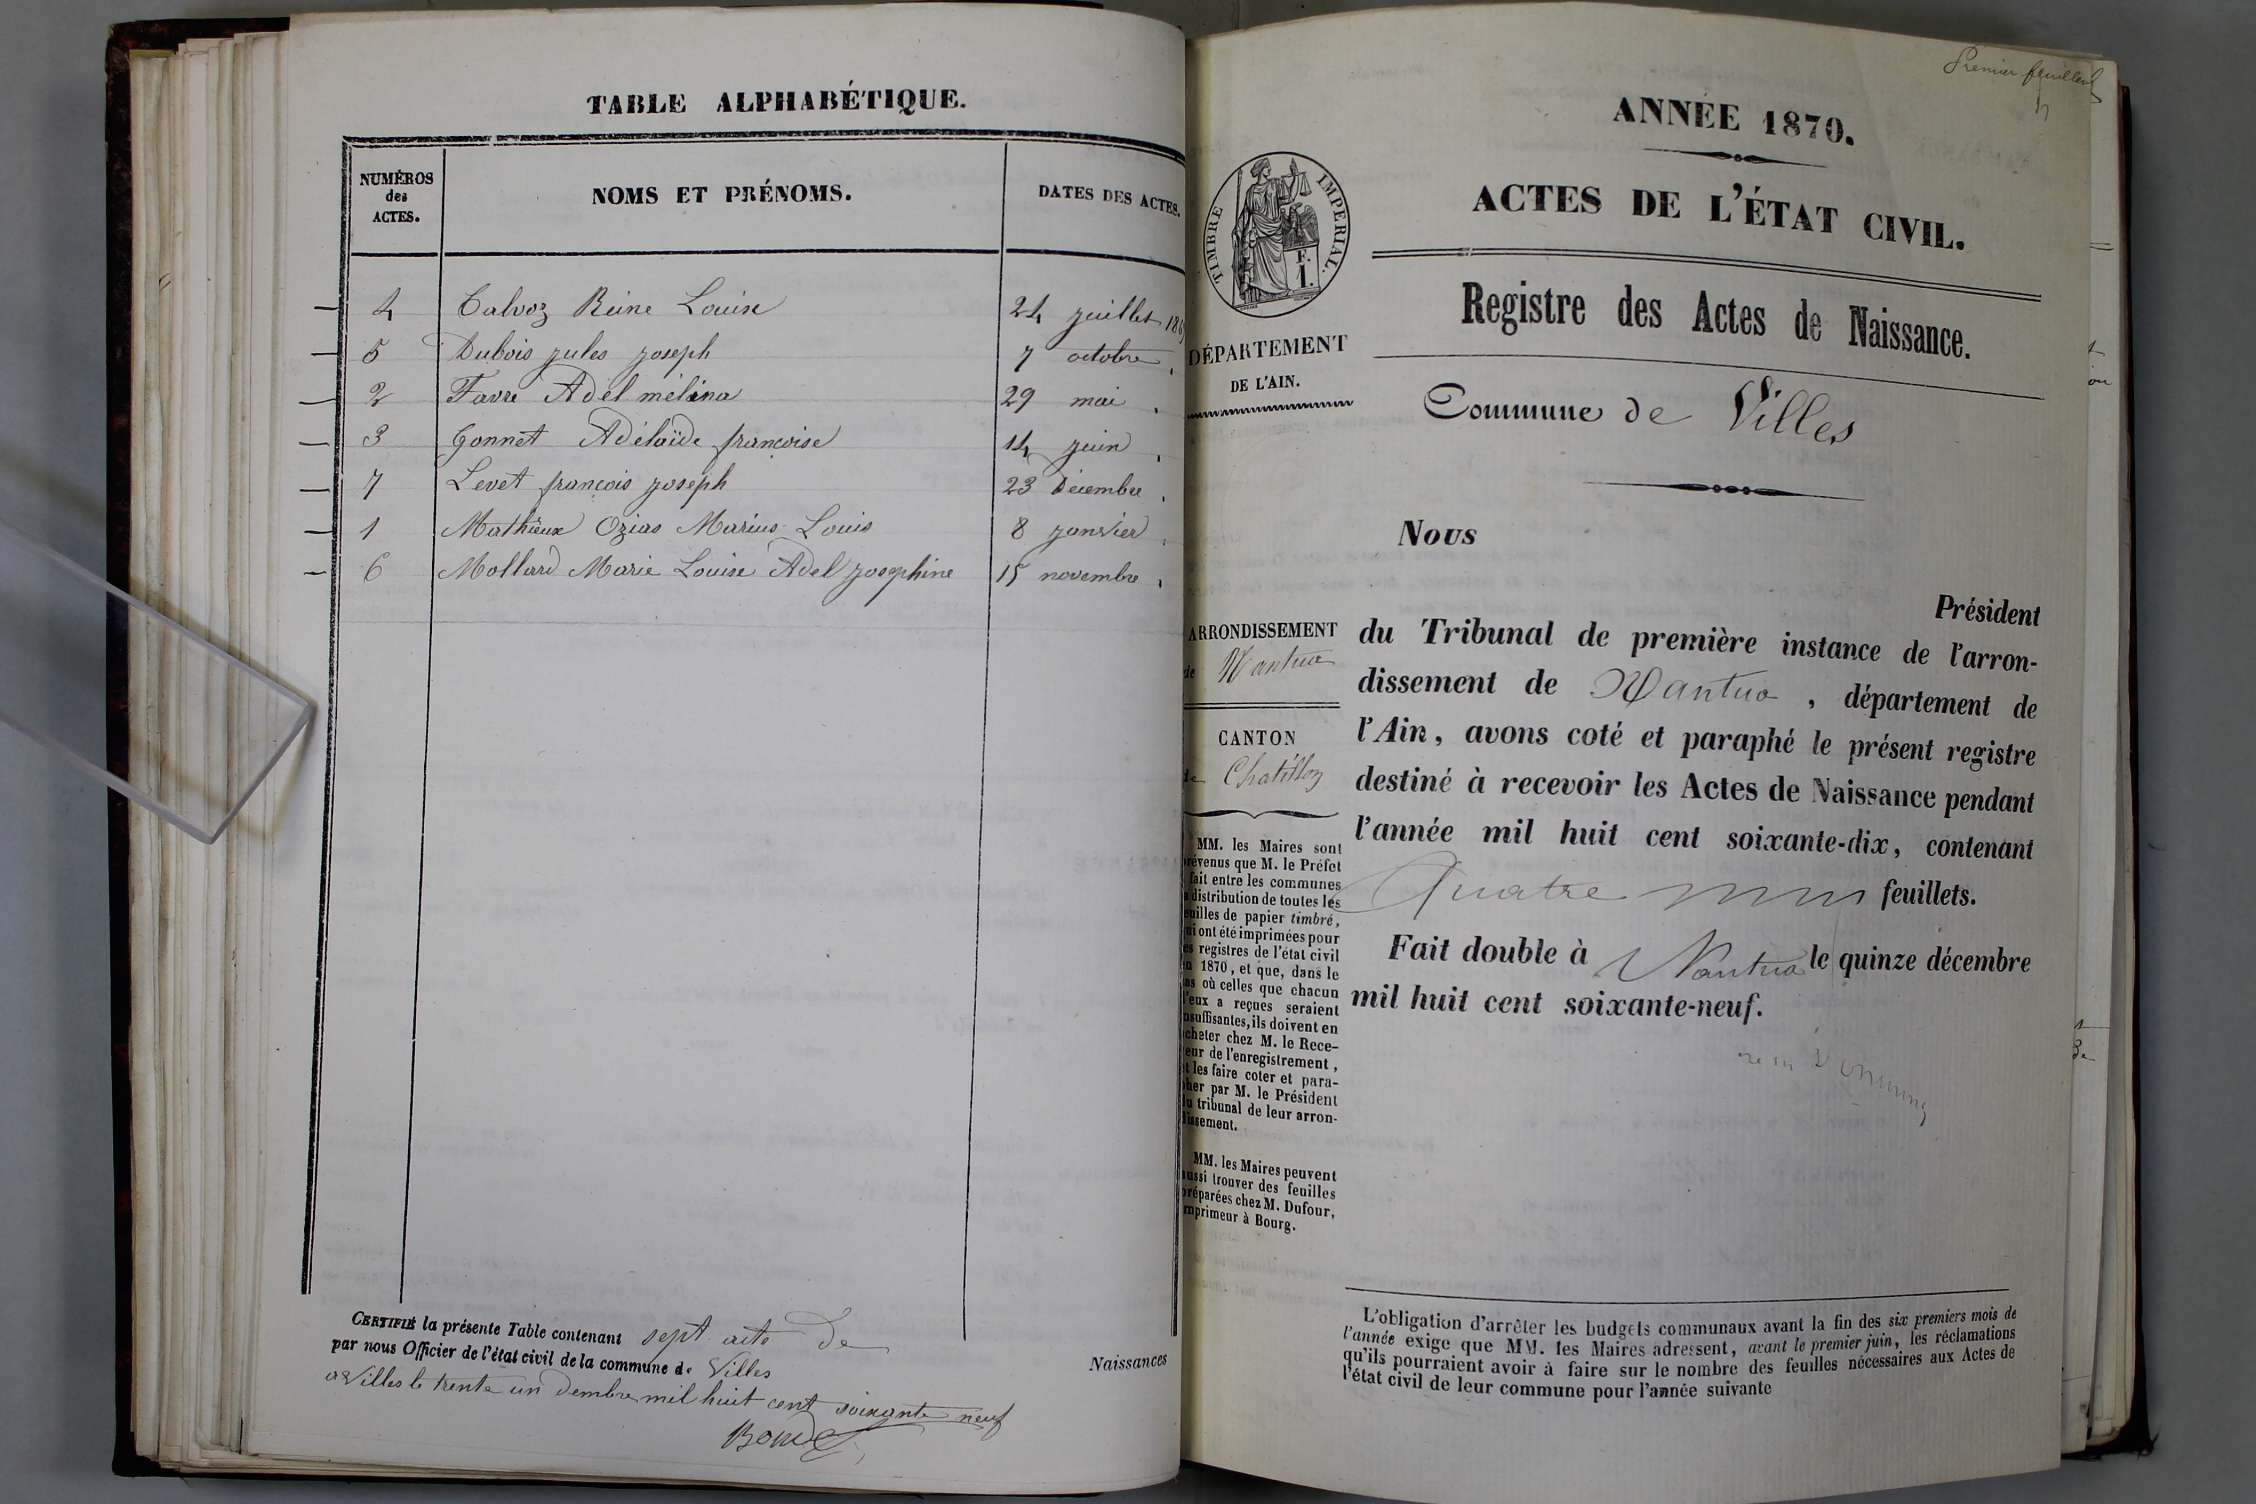 TABLE ALPHABÉTIQUE.
NUMÉROS
des
ACTES.
NOMS ET PRÉNOMS.
DATES DES ACTES.
4 Calvoz Reine Louise 24 juillet 186
5 Dubois jules joseph 7 octobre
2 Favre Adel mélina 29 mai
3 Gonnet Adélaïde françoise 14 juin
7 Levet françois joseph 23 Décembre
1 Mathieux Ozias Marius Louis 8 janvier
6 Mollard Marie Louise Adel josephine 15 novembre
CERTIFIÉ la présente Table contenant sept acte de
Naissances
par nous Officier de l'état civil de la commune de Villes
a Villes le trente un Dembre mil huit cent soixante neuf
Premier feuillet
ANNÉE 1870.
ACTES DE L'ÉTAT CIVIL.
Registre des Actes de Naissance.
Commune de Villes
TIMBRE IMPERIAL.
F.
1.
DÉPARTEMENT
DE L'AIN.
ARRONDISSEMENT
de Nantua
CANTON
de Chatillon
MM. les Maires sont
prévenus que M. le Préfet
fait entre les communes
a distribution de toutes les
euilles de papier timbré,
ui ont été imprimées pour
es registres de l'état civil
n 1870, et que, dans le
as où celles que chacun
d'eux a reçues seraient
nsuffisantes, ils doivent en
cheter chez M. le Rece-
eur de l'enregistrement,
t les faire coter et para-
pher par M. le Président
du tribunal de leur arron-
dissement.
MM. les Maires peuvent
aussi trouver des feuilles
préparées chez M. Dufour,
mprimeur à Bourg.
Nous
Président
du Tribunal de première instance de l'arron-
dissement de Nantua, département de
l'Ain, avons coté et paraphé le présent registre
destiné à recevoir les Actes de Naissance pendant
l'année mil huit cent soixante-dix, contenant
Quatre feuillets.
Fait double à Nantua le quinze décembre
mil huit cent soixante-neuf.
L'obligation d'arrêter les budgets communaux avant la fin des six premiers mois de
l'année exige que MM. les Maires adressent, avant le premier juin, les réclamations
qu'ils pourraient avoir à faire sur le nombre des feuilles nécessaires aux Actes de
l'état civil de leur commune pour l'année suivante